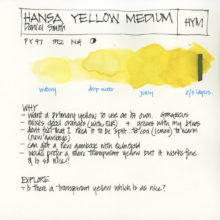 HANSA YELLOW MEDIUM
HYM
Daniel Smith
PY 97
watery
drop water
juicy
2/3 layers
WHY
- want a primary yellow to use on its own. Gorgeous
- mixes good oranges + greens with my blues
- don't feel that I need it to be split to cool (lemon) to warm
(new gamboge)
- can get a new gamboge with
- would prefer a more transparent yellow but it works fine
& is so nice!
EXPLORE
- is there a transparent yellow which is as nice?